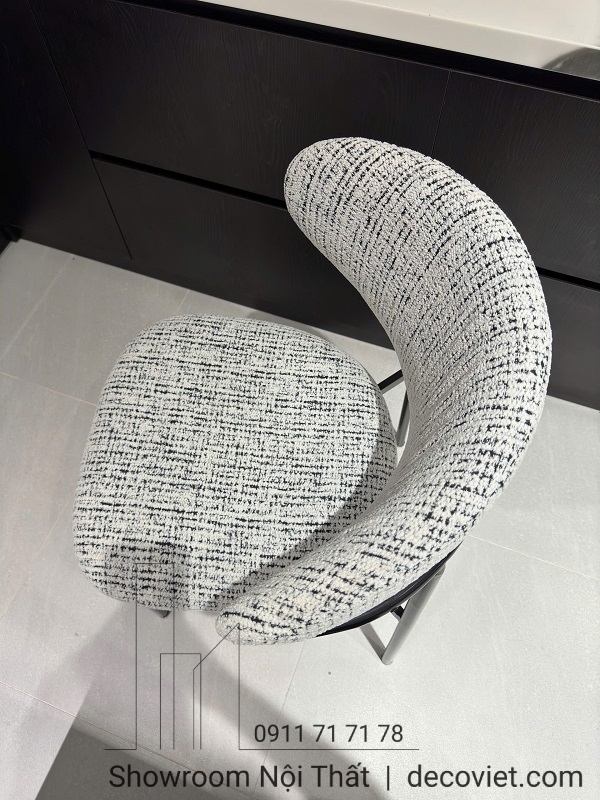 0911 71 71 78
Showroom Nội Thất | decoviet.com